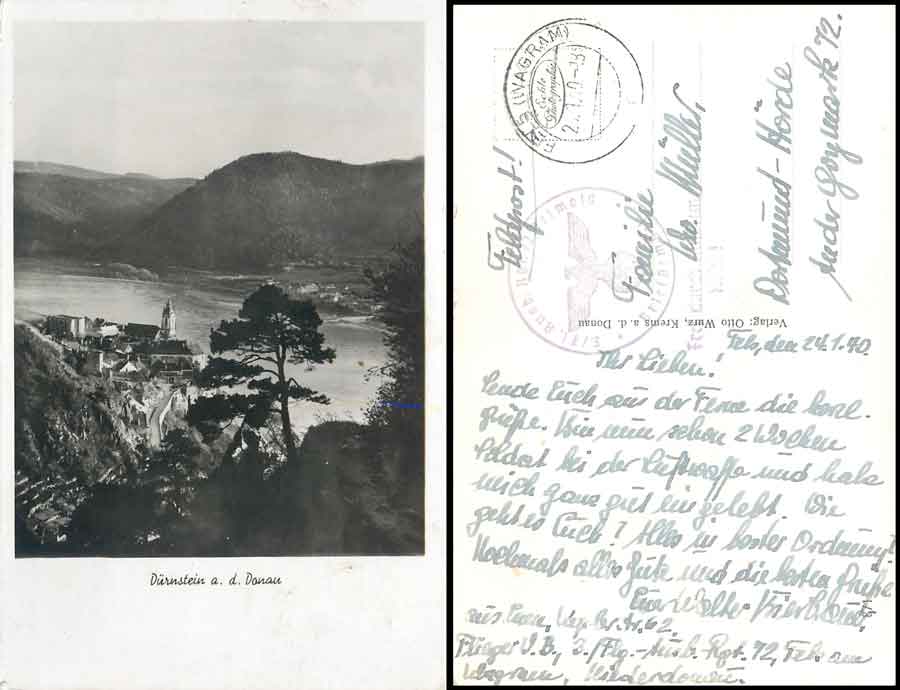 Dürnstein a. d. Donau
FELS (WAGRAM)
Echte
Photographie
Feldpost!
Familie
Wr. Müller,
Dortmund-Hörde
An der Goymark 72.
Verlag: Otto Wurz, Krems a. d. Donau
Fels, den 24.1.40.
Ihr Lieben!
Sende Euch aus der Ferne die herzl.
Grüße. Bin nun schon 2 Wochen
Soldat bei der Luftwaffe und habe
mich ganz gut eingelebt. Wie
geht es Euch? Alles in bester Ordnung?
Nochmals alles Gute und die besten Grüße
Euer Walter
aus
Flieger W. B., 3./Flg.-Ausb.-Rgt. 72, Fels am
Wagram, Niederdonau.